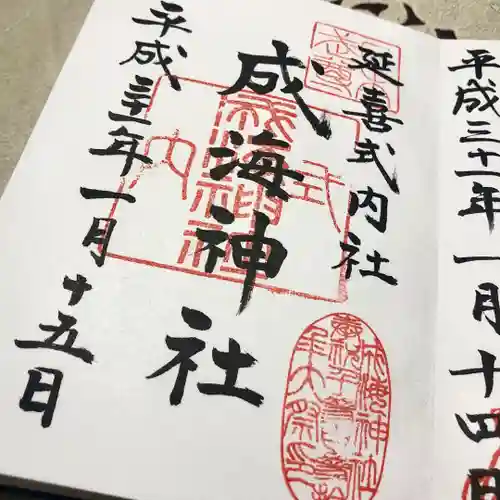 平成三十一年一月十四日
延喜式内社
成海神社
平成三十一年一月十五日
式内
成海神社